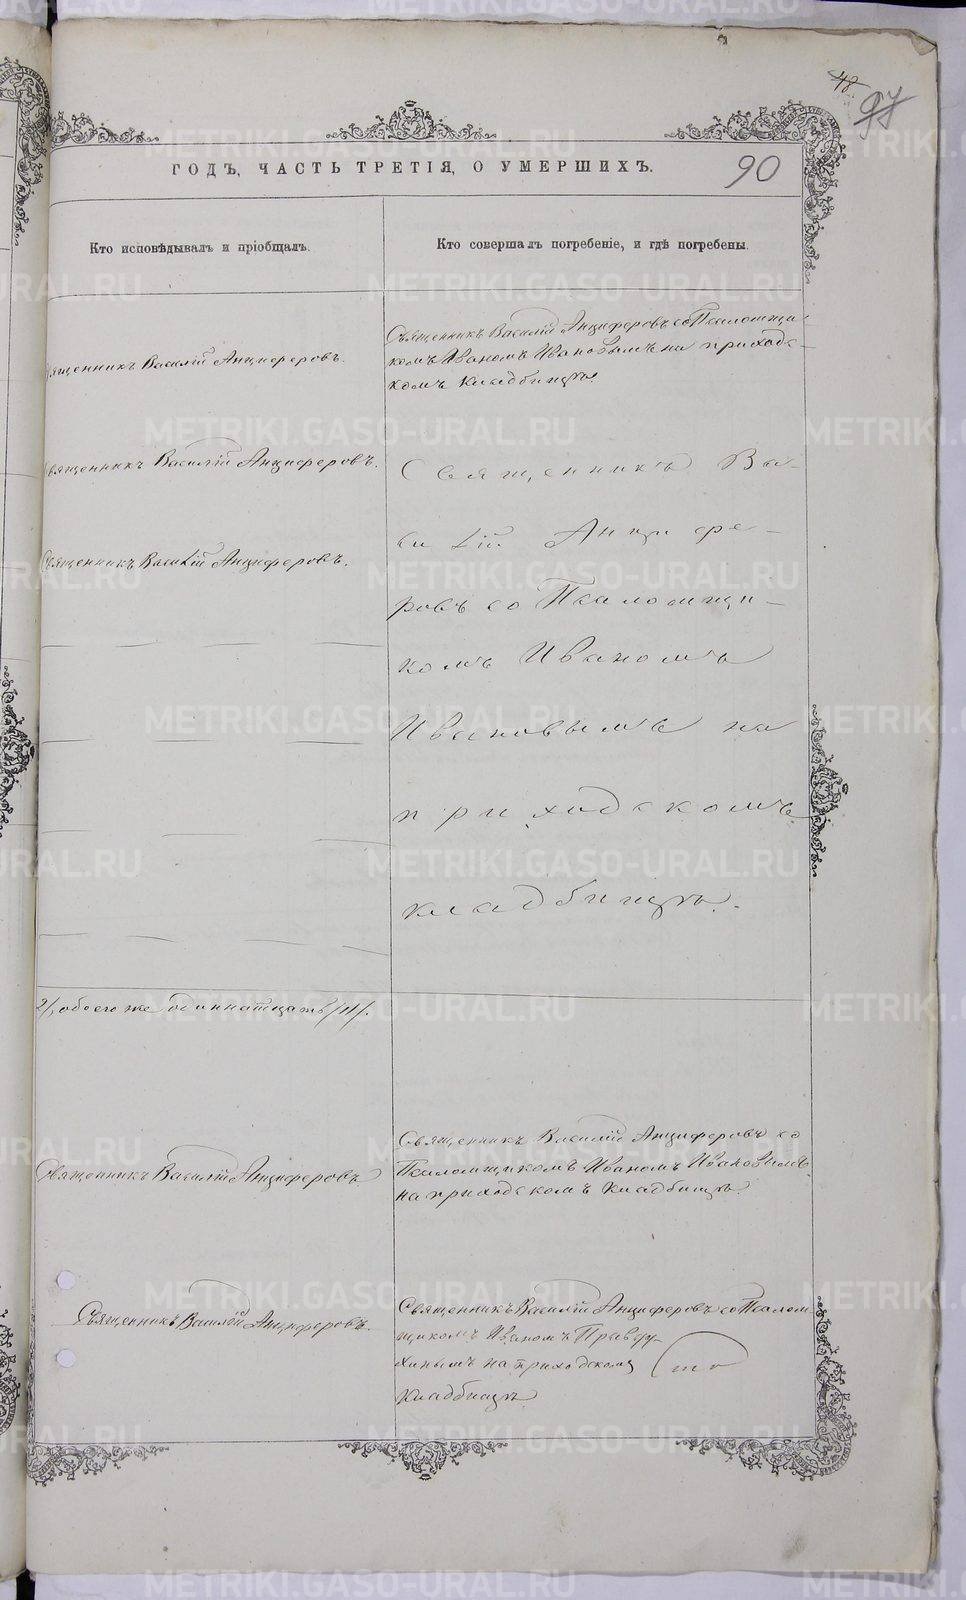 48.
97
ГОДЪ, ЧАСТЬ ТРЕТІЯ, О УМЕРШИХЪ.
90
Кто исповѣдывалъ и пріобщалъ.
Кто совершалъ погребеніе, и гдѣ погребены.
Священникъ Василій Анциферовъ.
Священникъ Василій Анциферовъ со Псаломщи-
комъ Иваномъ Ивановымъ на приходс-
комъ кладбищѣ.
Священникъ Василій Анциферовъ.
Священникъ Ва-
силій Анцифе-
Священникъ Василій Анциферовъ.
ровъ со Псаломщи-
комъ Иваномъ
Ивановымъ на
приходскомъ
кладбищѣ.
2/, обоего же одиннатцать /11/.
Священникъ Василій Анциферовъ со
Псаломщикомъ Иваномъ Ивановымъ
на приходскомъ кладбищѣ.
Священникъ Василій Анциферовъ
Священникъ Василій Анциферовъ.
Священникъ Василій Анциферовъ со Псалом
щикомъ Иваномъ
на приходскомъ
кладбищѣ.
METRIKI.GASO-URAL.RU